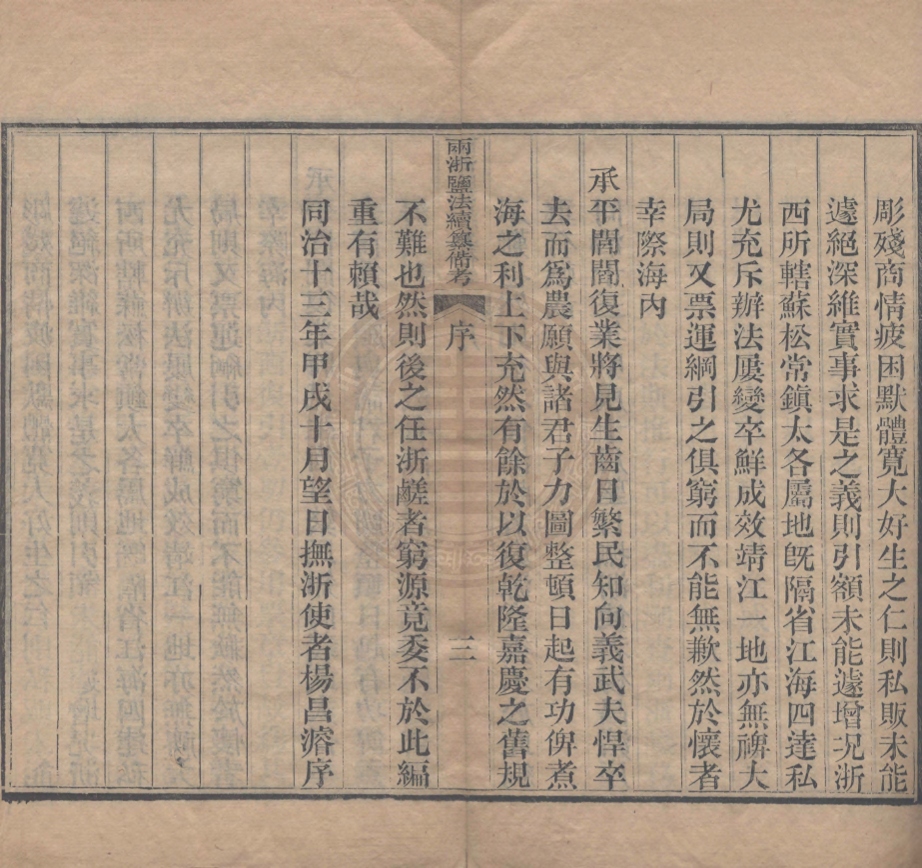 彫殘商情疲困默體寬大好生之仁則私販未能
遽絕深維實事求是之義則引額未能遽增況浙
西所轄蘇松常鎮太各屬地旣隔省江海四達私
尤充斥辦法屢變卒鮮成效靖江一地亦無禆大
局則又票運綱引之俱窮而不能無歉然於懷者
幸際海內
承平閭閻復業將見生齒日繁民知向義武夫悍卒
去而爲農願與諸君子力圖整頓日起有功俾煮
海之利上下充然有餘於以復乾隆嘉慶之舊規
兩浙鹽法續纂備考 序 三
不難也然則後之任浙鹺者窮源竟委不於此編
重有賴哉
同治十三年甲戌十月望日撫浙使者楊昌濬序